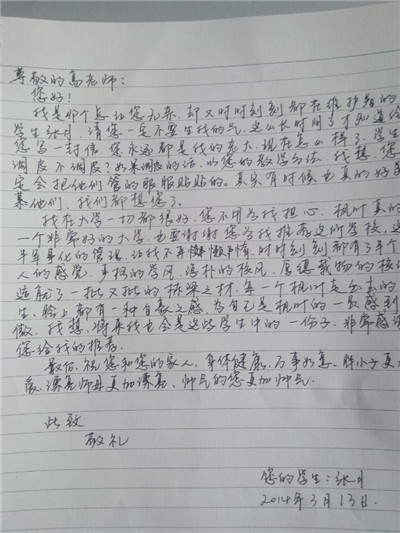 尊敬的高老师:
您好!
我是那个总让您无奈,却又时时刻刻都在维护您的
学生张月,请您一定不要生我的气,这么长时间了才知道给
您写一封信,您永远都是我的老大,现在怎么样了,学生
调皮不调皮?如果调皮的话,以您的教学方法,我想,您
定会把他们管的服服贴贴的。其实有时候也真的好羡
慕他们,我们都想您了。
我在大学一切都很好,您不用为我担心,枫叶真的
一个非常好的大学,也要谢谢您为我推荐这所学校,这
半军事化的管理,让我不再懒散,时时刻刻都有了军
人的感觉。严格的学风,淳朴的校风,厚德载物的校
造就了一批又一批的栋梁之材,每一个枫叶走出去的
生,脸上都有一种自豪之感,为自己是枫叶的一员感到
傲。我想,将来我也会是这些学生中的一份子,非常感谢
您给我的推荐。
最后,祝您和您的家人,身体健康,万事如意,胖小子更
漂亮师母更加漂亮,帅气的您更加帅气。
此致
敬礼
您的学生:张月
2014年3月13日.